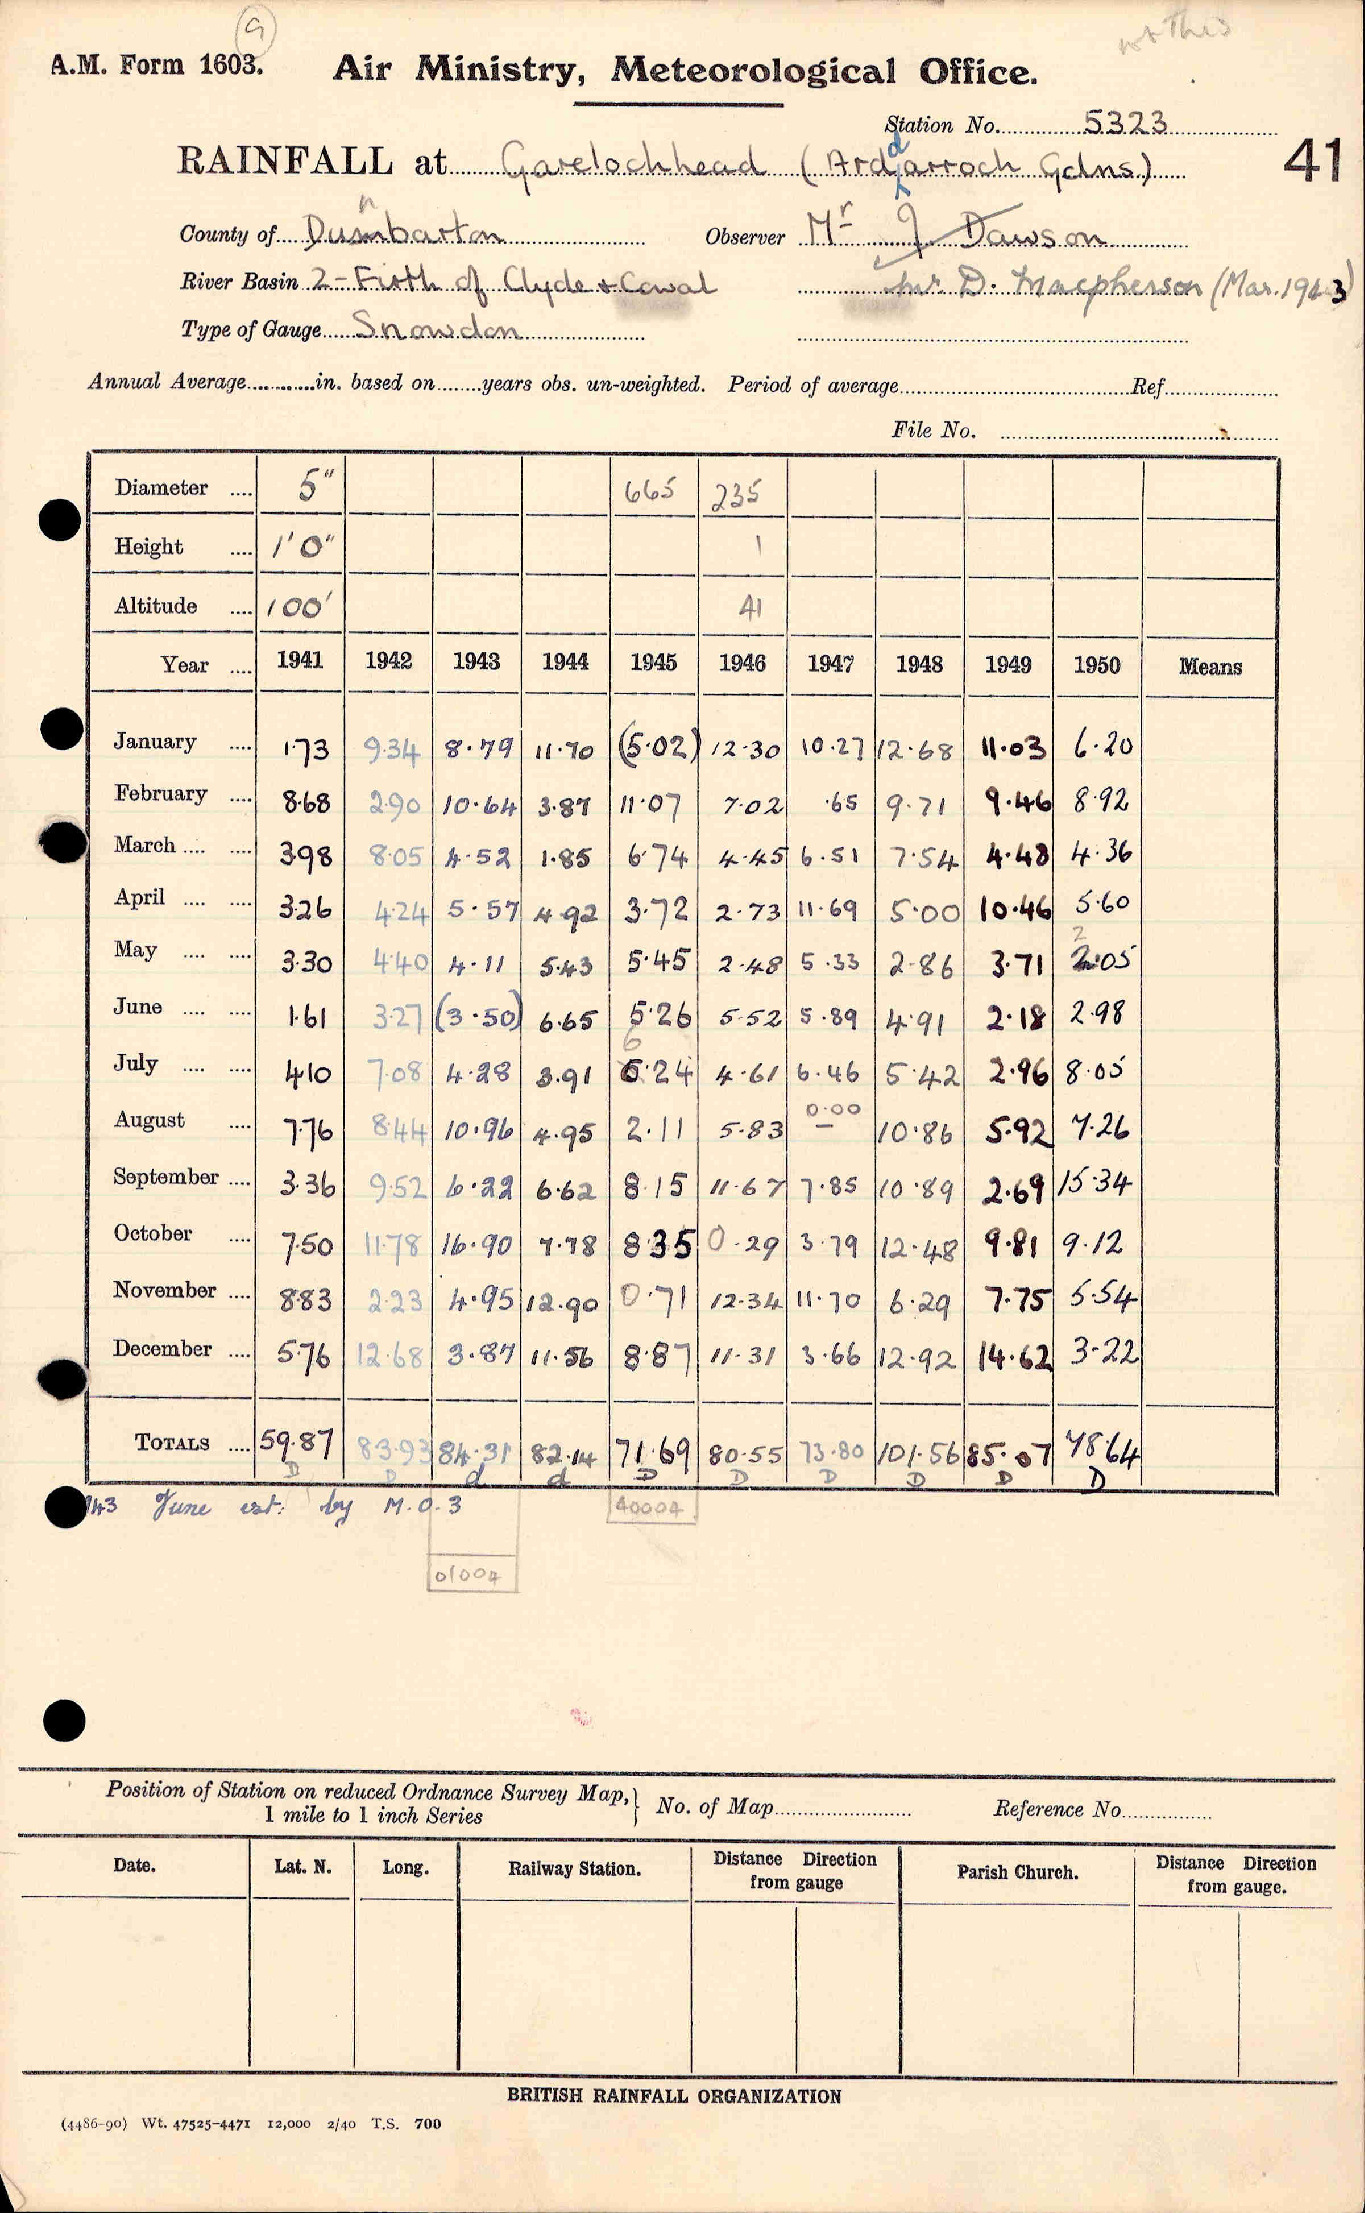 9
not this
A.M. Form 1603. Air Ministry, Meteorological Office.
Station No. 5323
RAINFALL at Garelochhead (Arddarroch Gdns) 41
County of Dumbarton Observer Mr J Dawson
n
River Basin 2-Firth of Clyde & Cowal Mr D. Macpherson (Mar. 1943)
Type of Gauge Snowdon
Annual Average in. based on years obs. un-weighted. Period of average Ref
File No.
Diameter 5" 665 235
Height 1'0" 1
Altitude 100' 41
Year 1941 1942 1943 1944 1945 1946 1947 1948 1949 1950 Means
January 1.73 9.34 8.79 11.70 (5.02) 12.30 10.27 12.68 11.03 6.20
February 8.68 2.90 10.64 3.87 11.07 7.02 .65 9.71 9.46 8.92
March 3.98 8.05 4.52 1.85 6.74 4.45 6.51 7.54 4.48 4.36
April 3.26 4.24 5.57 4.92 3.72 2.73 11.69 5.00 10.46 5.60
2
May 3.30 4.40 4.11 5.43 5.45 2.48 5.33 2.86 3.71 2.05
June 1.61 3.27 (3.50) 6.65 5.26 5.52 5.89 4.91 2.18 2.98
6
July 4.10 7.08 4.28 3.91 6.24 4.61 6.46 5.42 2.96 8.05
0.00
August 7.76 8.44 10.96 4.95 2.11 5.83 — 10.86 5.92 7.26
September 3.36 9.52 6.22 6.62 8.15 11.67 7.85 10.89 2.69 15.34
October 7.50 11.78 16.90 7.78 8.35 0.29 3.79 12.48 9.81 9.12
November 8.83 2.23 4.95 12.90 0.71 12.34 11.70 6.29 7.75 5.54
December 5.76 12.68 3.87 11.56 8.87 11.31 3.66 12.92 14.62 3.22
TOTALS 59.87 83.93 84.31 82.14 71.69 80.55 73.80 101.56 85.07 78.64
D D d d D D D D D D
943 June est: by M.O.3 40004
01004
Position of Station on reduced Ordnance Survey Map, } No. of Map Reference No.
1 mile to 1 inch Series
Date. Lat. N. Long. Railway Station. Distance Direction from gauge Parish Church. Distance Direction from gauge.
BRITISH RAINFALL ORGANIZATION
(4486-90) Wt. 47525-4471 12,000 2/40 T.S. 700